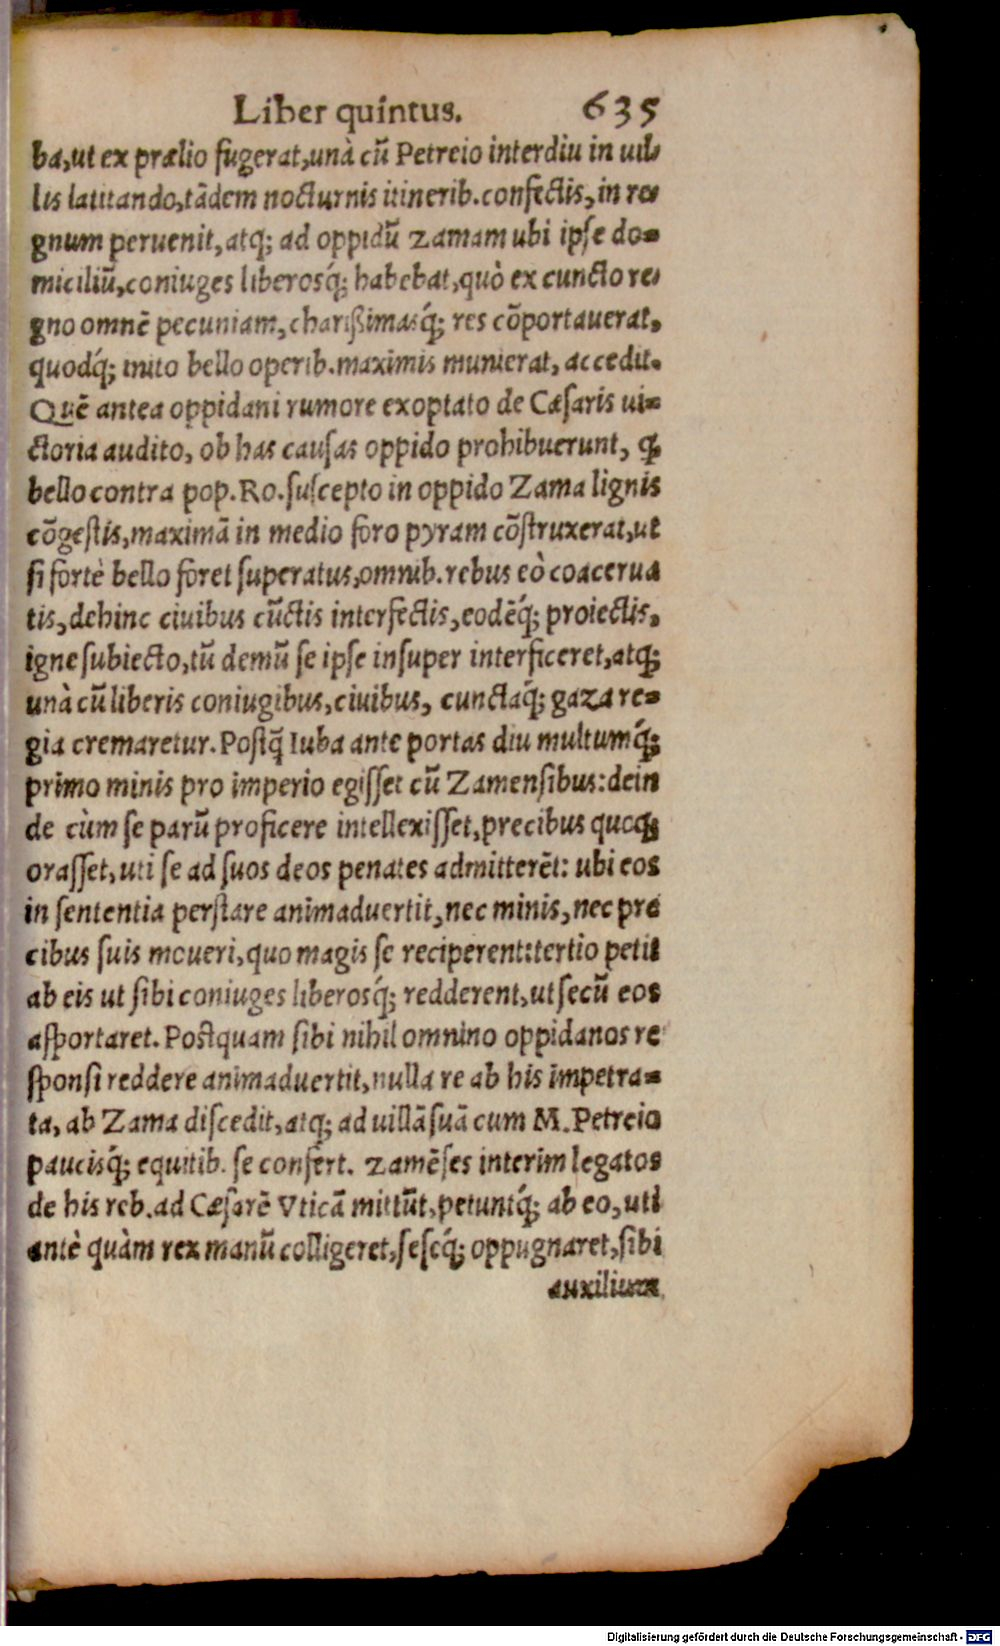 Liber quintus. 635
ba, ut ex prælio fugerat, unà cũ Petreio interdiu in uil-
lis latitando, tãdem nocturnis itinerib. confectis, in re-
gnum peruenit, atq; ad oppidũ Zamam ubi ipse do-
miciliũ, coniuges liberosq́; habebat, quò ex cuncto re-
gno omnẽ pecuniam, charißimasq́; res cõportauerat,
quodq́; inito bello operib. maximis munierat, accedit.
Quẽ antea oppidani rumore exoptato de Cæsaris ui-
ctoria audito, ob has causas oppido prohibuerunt, ꝙ
bello contra pop. Ro. suscepto in oppido Zama lignis
cõgestis, maximã in medio foro pyram cõstruxerat, ut
si fortè bello foret superatus, omnib. rebus eò coacerua
tis, dehinc ciuibus cũctis interfectis, eodẽq́; proiectis,
igne subiecto, tũ demũ se ipse insuper interficeret, atq;
unà cũ liberis coniugibus, ciuibus, cunctaq́; gaza re-
gia cremaretur. Postq̃ Iuba ante portas diu multumq́;
primo minis pro imperio egisset cũ Zamensibus: dein
de cùm se parũ proficere intellexisset, precibus quoq;
orasset, uti se ad suos deos penates admitterẽt: ubi eos
in sententia perstare animaduertit, nec minis, nec pre
cibus suis moueri, quo magis se reciperent: tertio petit
ab eis ut sibi coniuges liberosq́; redderent, ut secũ eos
asportaret. Postquam sibi nihil omnino oppidanos re
sponsi reddere animaduertit, nulla re ab his impetra-
ta, ab Zama discedit, atq; ad uillã suã cum M. Petreio
paucisq́; equitib. se confert. Zamẽses interim legatos
de his reb. ad Cæsarẽ Vticã mittũt, petuntq́; ab eo, uti
antè quàm rex manũ colligeret, seseq́; oppugnaret, sibi
auxilium
Digitalisierung gefördert durch die Deutsche Forschungsgemeinschaft - DFG